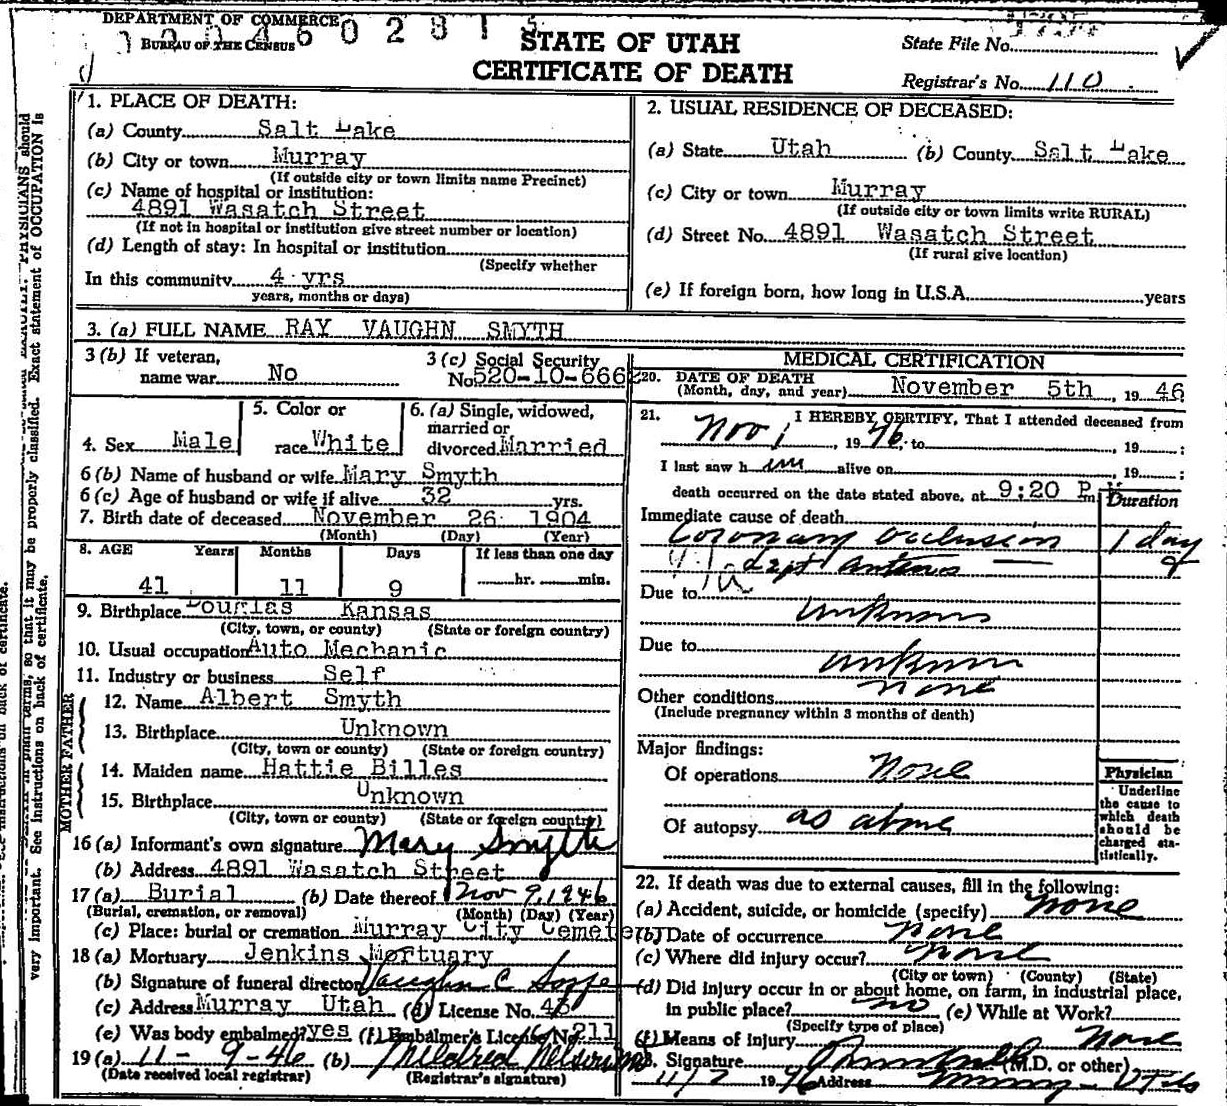 DEPARTMENT OF COMMERCE
BUREAU OF THE CENSUS
STATE OF UTAH
CERTIFICATE OF DEATH
State File No.
Registrar's No. 110
1. PLACE OF DEATH:
(a) County Salt Lake
(b) City or town Murray
(If outside city or town limits name Precinct)
(c) Name of hospital or institution:
4891 Wasatch Street
(If not in hospital or institution give street number or location)
(d) Length of stay: In hospital or institution
(Specify whether
In this community 4 yrs
years, months or days)
2. USUAL RESIDENCE OF DECEASED:
(a) State Utah (b) County Salt Lake
(c) City or town Murray
(If outside city or town limits write RURAL)
(d) Street No. 4891 Wasatch Street
(If rural give location)
(e) If foreign born, how long in U.S.A. years
3. (a) FULL NAME RAY VAUGHN SMYTH
3 (b) If veteran,
name war No
3 (c) Social Security
No. 520-10-666
4. Sex Male
5. Color or
race White
6. (a) Single, widowed,
married or
divorced Married
6 (b) Name of husband or wife Mary Smyth
6 (c) Age of husband or wife if alive 32 yrs.
7. Birth date of deceased November 26 1904
(Month) (Day) (Year)
8. AGE Years Months Days If less than one day
41 11 9 hr. min.
9. Birthplace Douglas Kansas
(City, town, or county) (State or foreign country)
10. Usual occupation Auto Mechanic
11. Industry or business Self
FATHER
12. Name Albert Smyth
13. Birthplace Unknown
(City, town or county) (State or foreign country)
MOTHER
14. Maiden name Hattie Billes
15. Birthplace Unknown
(City, town or county) (State or foreign country)
16 (a) Informant's own signature Mary Smyth
(b) Address 4891 Wasatch Street
17 (a) Burial (b) Date thereof Nov 9, 1946
(Burial, cremation, or removal) (Month) (Day) (Year)
(c) Place: burial or cremation Murray City Cemetery
18 (a) Mortuary Jenkins Mortuary
(b) Signature of funeral director Vaughn C
(c) Address Murray Utah (d) License No.
(e) Was body embalmed? yes (f) Embalmer's License No. 211
19 (a) 11-9-46 (b) Mildred
(Date received local registrar) (Registrar's signature)
MEDICAL CERTIFICATION
20. DATE OF DEATH
(Month, day, and year) November 5th, 1946
21. I HEREBY CERTIFY, That I attended deceased from
Nov 1, 1946, to , 19 ;
I last saw him alive on , 19 ;
death occurred on the date stated above, at 9:20 P m
Duration
Immediate cause of death
Coronary occlusion 1 day
Due to
unknown
Due to
unknown
Other conditions none
(Include pregnancy within 3 months of death)
Major findings:
Of operations None
Of autopsy as above
Physician
Underline
the cause to
which death
should be
charged sta-
tistically.
22. If death was due to external causes, fill in the following:
(a) Accident, suicide, or homicide (specify) none
(b) Date of occurrence none
(c) Where did injury occur? none
(City or town) (County) (State)
(d) Did injury occur in or about home, on farm, in industrial place,
in public place? no (e) While at Work?
(Specify type of place)
(f) Means of Injury None
23. Signature (M.D. or other)
1946 Address Murray Utah
very important. See instructions on back of certificate.